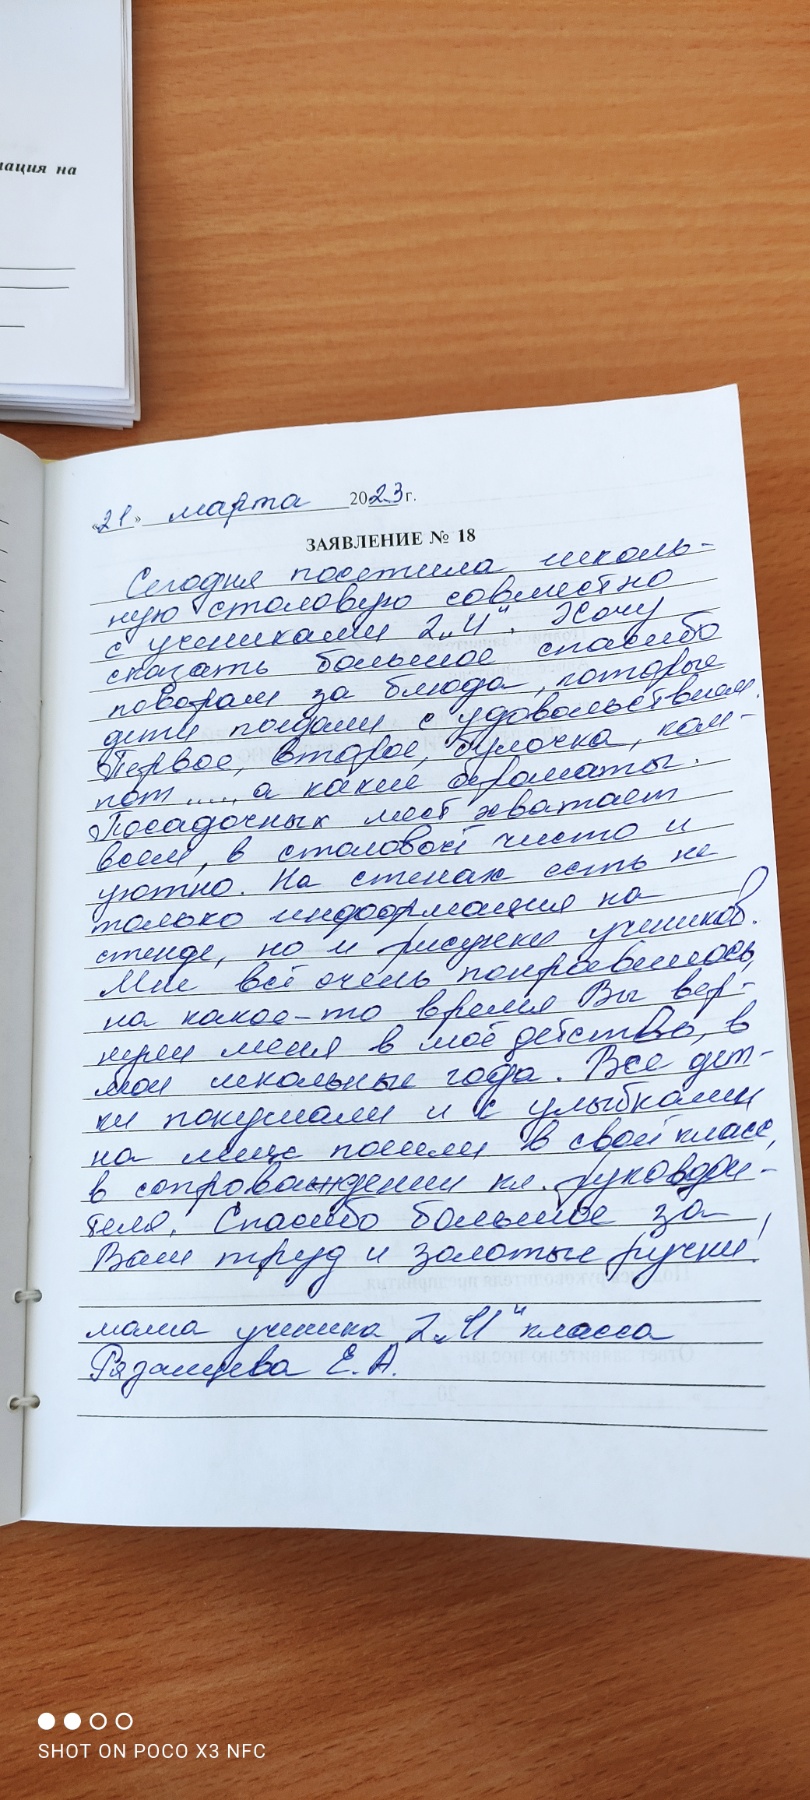 мация на
«21» марта 2023г.
ЗАЯВЛЕНИЕ № 18
Сегодня посетила школь-
ную столовую совместно
с учениками 2 „И“. Хочу
сказать большое спасибо
поварам за блюда, которые
дети поедали с удовольствием.
Первое, второе, булочка, ком-
пот ...., а какие ароматы.
Посадочных мест хватает
всем, в столовой чисто и
уютно. На стенах есть не
только информация на
стенде, но и рисунки учеников.
Мне всё очень понравилось,
на какое-то время Вы вер-
нули меня в моё детство, в
мои школьные года. Все дет-
ки покушали и с улыбками
на лице пошли в свой класс,
в сопровождении кл. руководи-
теля. Спасибо большое за
Ваш труд и золотые ручки!
мама ученика 2 „И“ класса
Рязанцева Е.А.
SHOT ON POCO X3 NFC